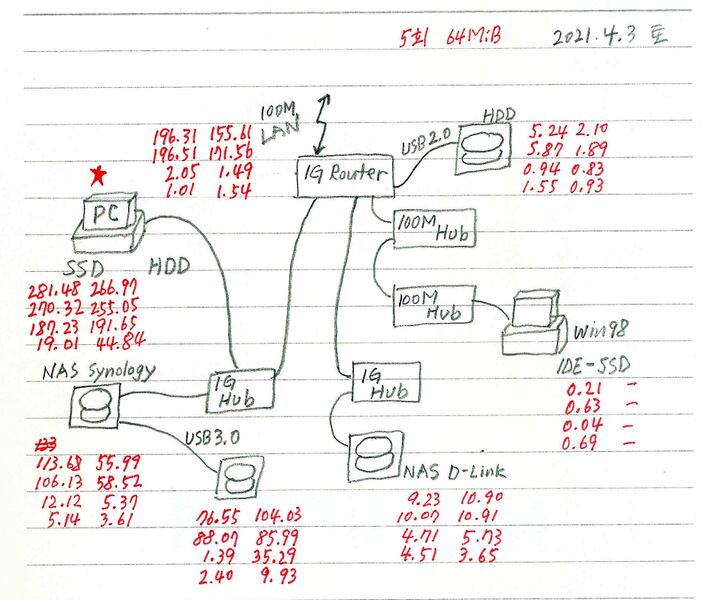 5회 64MiB 2021.4.3 토
100M LAN
USB2.0
HDD
196.31 155.61
196.51 171.56
2.05 1.49
1.01 1.54
5.24 2.10
5.87 1.89
0.94 0.83
1.55 0.93
1G Router
PC
100M Hub
SSD HDD
281.48 266.97
270.32 255.05
187.23 191.65
19.01 44.84
100M Hub
Win98
IDE-SSD
0.21 -
0.63 -
0.04 -
0.69 -
NAS Synology
1G Hub
1G Hub
USB3.0
113.68 55.99
106.13 58.52
12.12 5.37
5.14 3.61
NAS D-Link
9.23 10.90
10.07 10.91
4.71 5.73
4.51 3.65
76.55 104.03
88.07 85.99
1.39 35.29
2.40 9.93